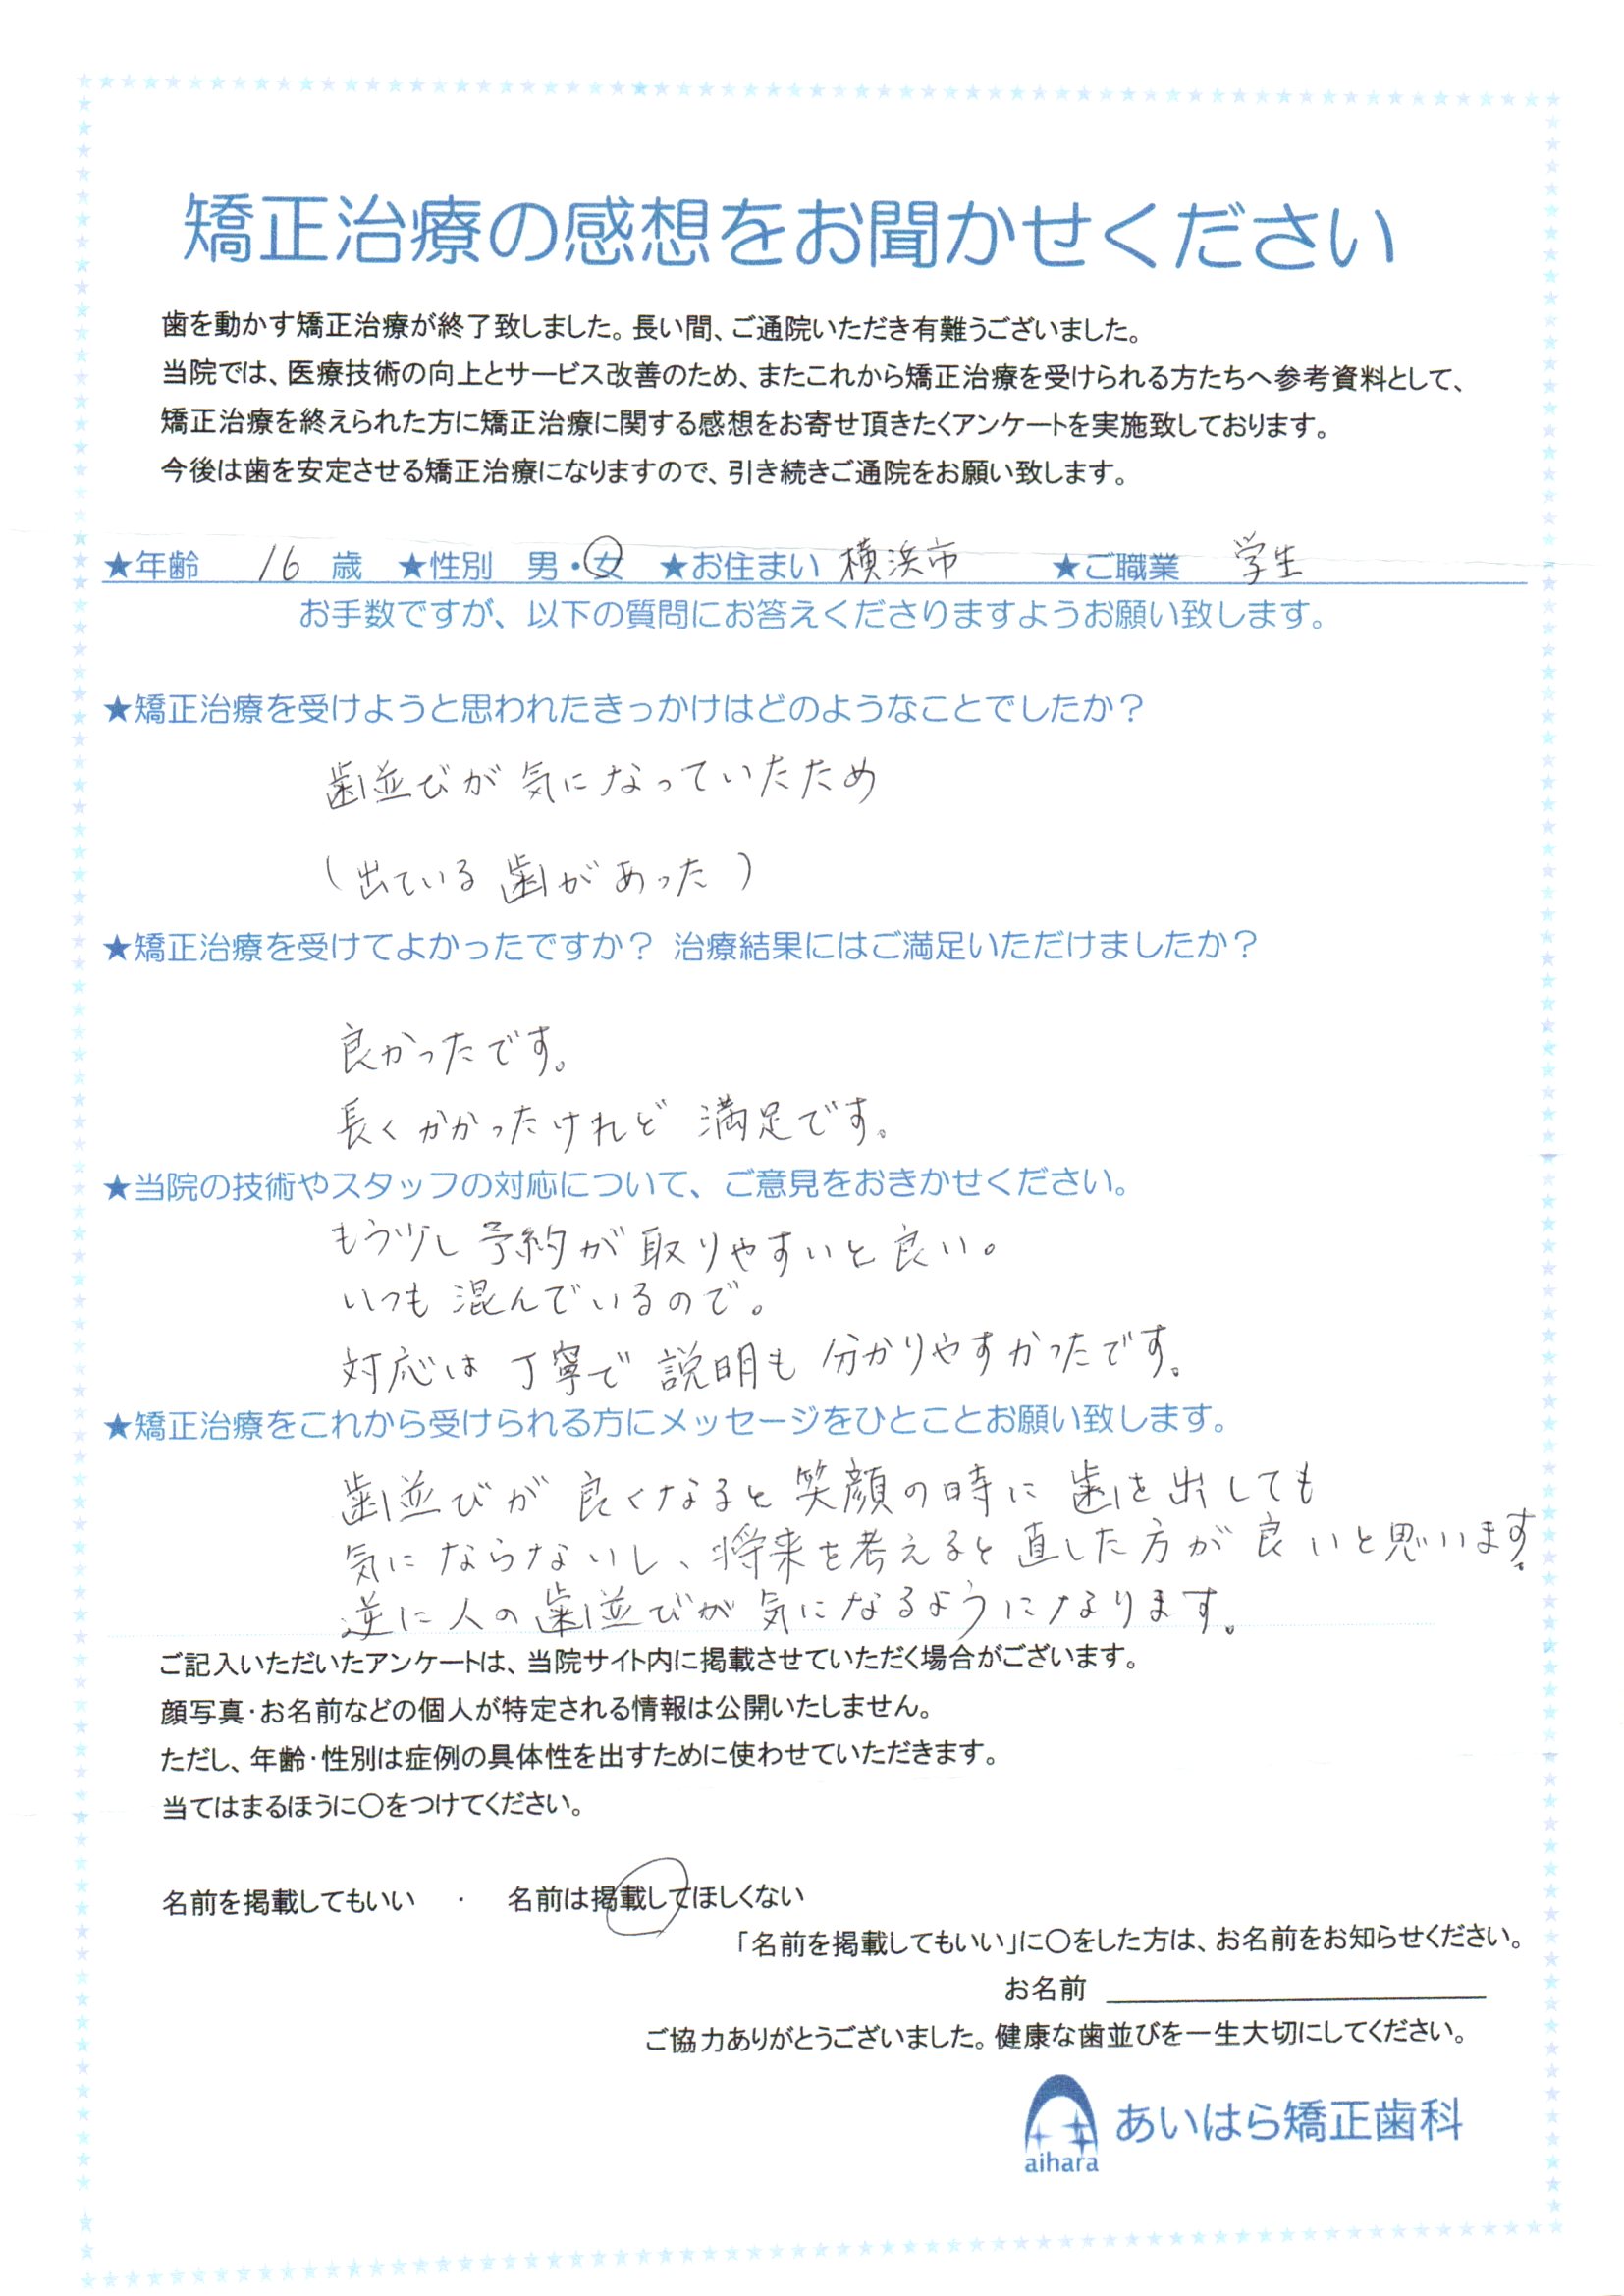 矯正治療の感想をお聞かせください
歯を動かす矯正治療が終了致しました。長い間、ご通院いただき有難うございました。
当院では、医療技術の向上とサービス改善のため、またこれから矯正治療を受けられる方たちへ参考資料として、
矯正治療を終えられた方に矯正治療に関する感想をお寄せ頂きたくアンケートを実施致しております。
今後は歯を安定させる矯正治療になりますので、引き続きご通院をお願い致します。
★年齢 16 歳 ★性別 男・女 ★お住まい 横浜市 ★ご職業 学生
お手数ですが、以下の質問にお答えくださりますようお願い致します。
★矯正治療を受けようと思われたきっかけはどのようなことでしたか？
歯並びが気になっていたため
(出ている歯があった)
★矯正治療を受けてよかったですか？ 治療結果にはご満足いただけましたか？
良かったです。
長くかかったけれど満足です。
★当院の技術やスタッフの対応について、ご意見をおきかせください。
もう少し予約が取りやすいと良い。
いつも混んでいるので。
対応は丁寧で説明も分かりやすかったです。
★矯正治療をこれから受けられる方にメッセージをひとことお願い致します。
歯並びが良くなると笑顔の時に歯を出しても
気にならないし、将来を考えると直した方が良いと思います。
逆に人の歯並びが気になるようになります。
ご記入いただいたアンケートは、当院サイト内に掲載させていただく場合がございます。
顔写真・お名前などの個人が特定される情報は公開いたしません。
ただし、年齢・性別は症例の具体性を出すために使わせていただきます。
当てはまるほうに〇をつけてください。
名前を掲載してもいい ・ 名前は掲載してほしくない
「名前を掲載してもいい」に〇をした方は、お名前をお知らせください。
お名前
ご協力ありがとうございました。健康な歯並びを一生大切にしてください。
あいはら矯正歯科
aihara